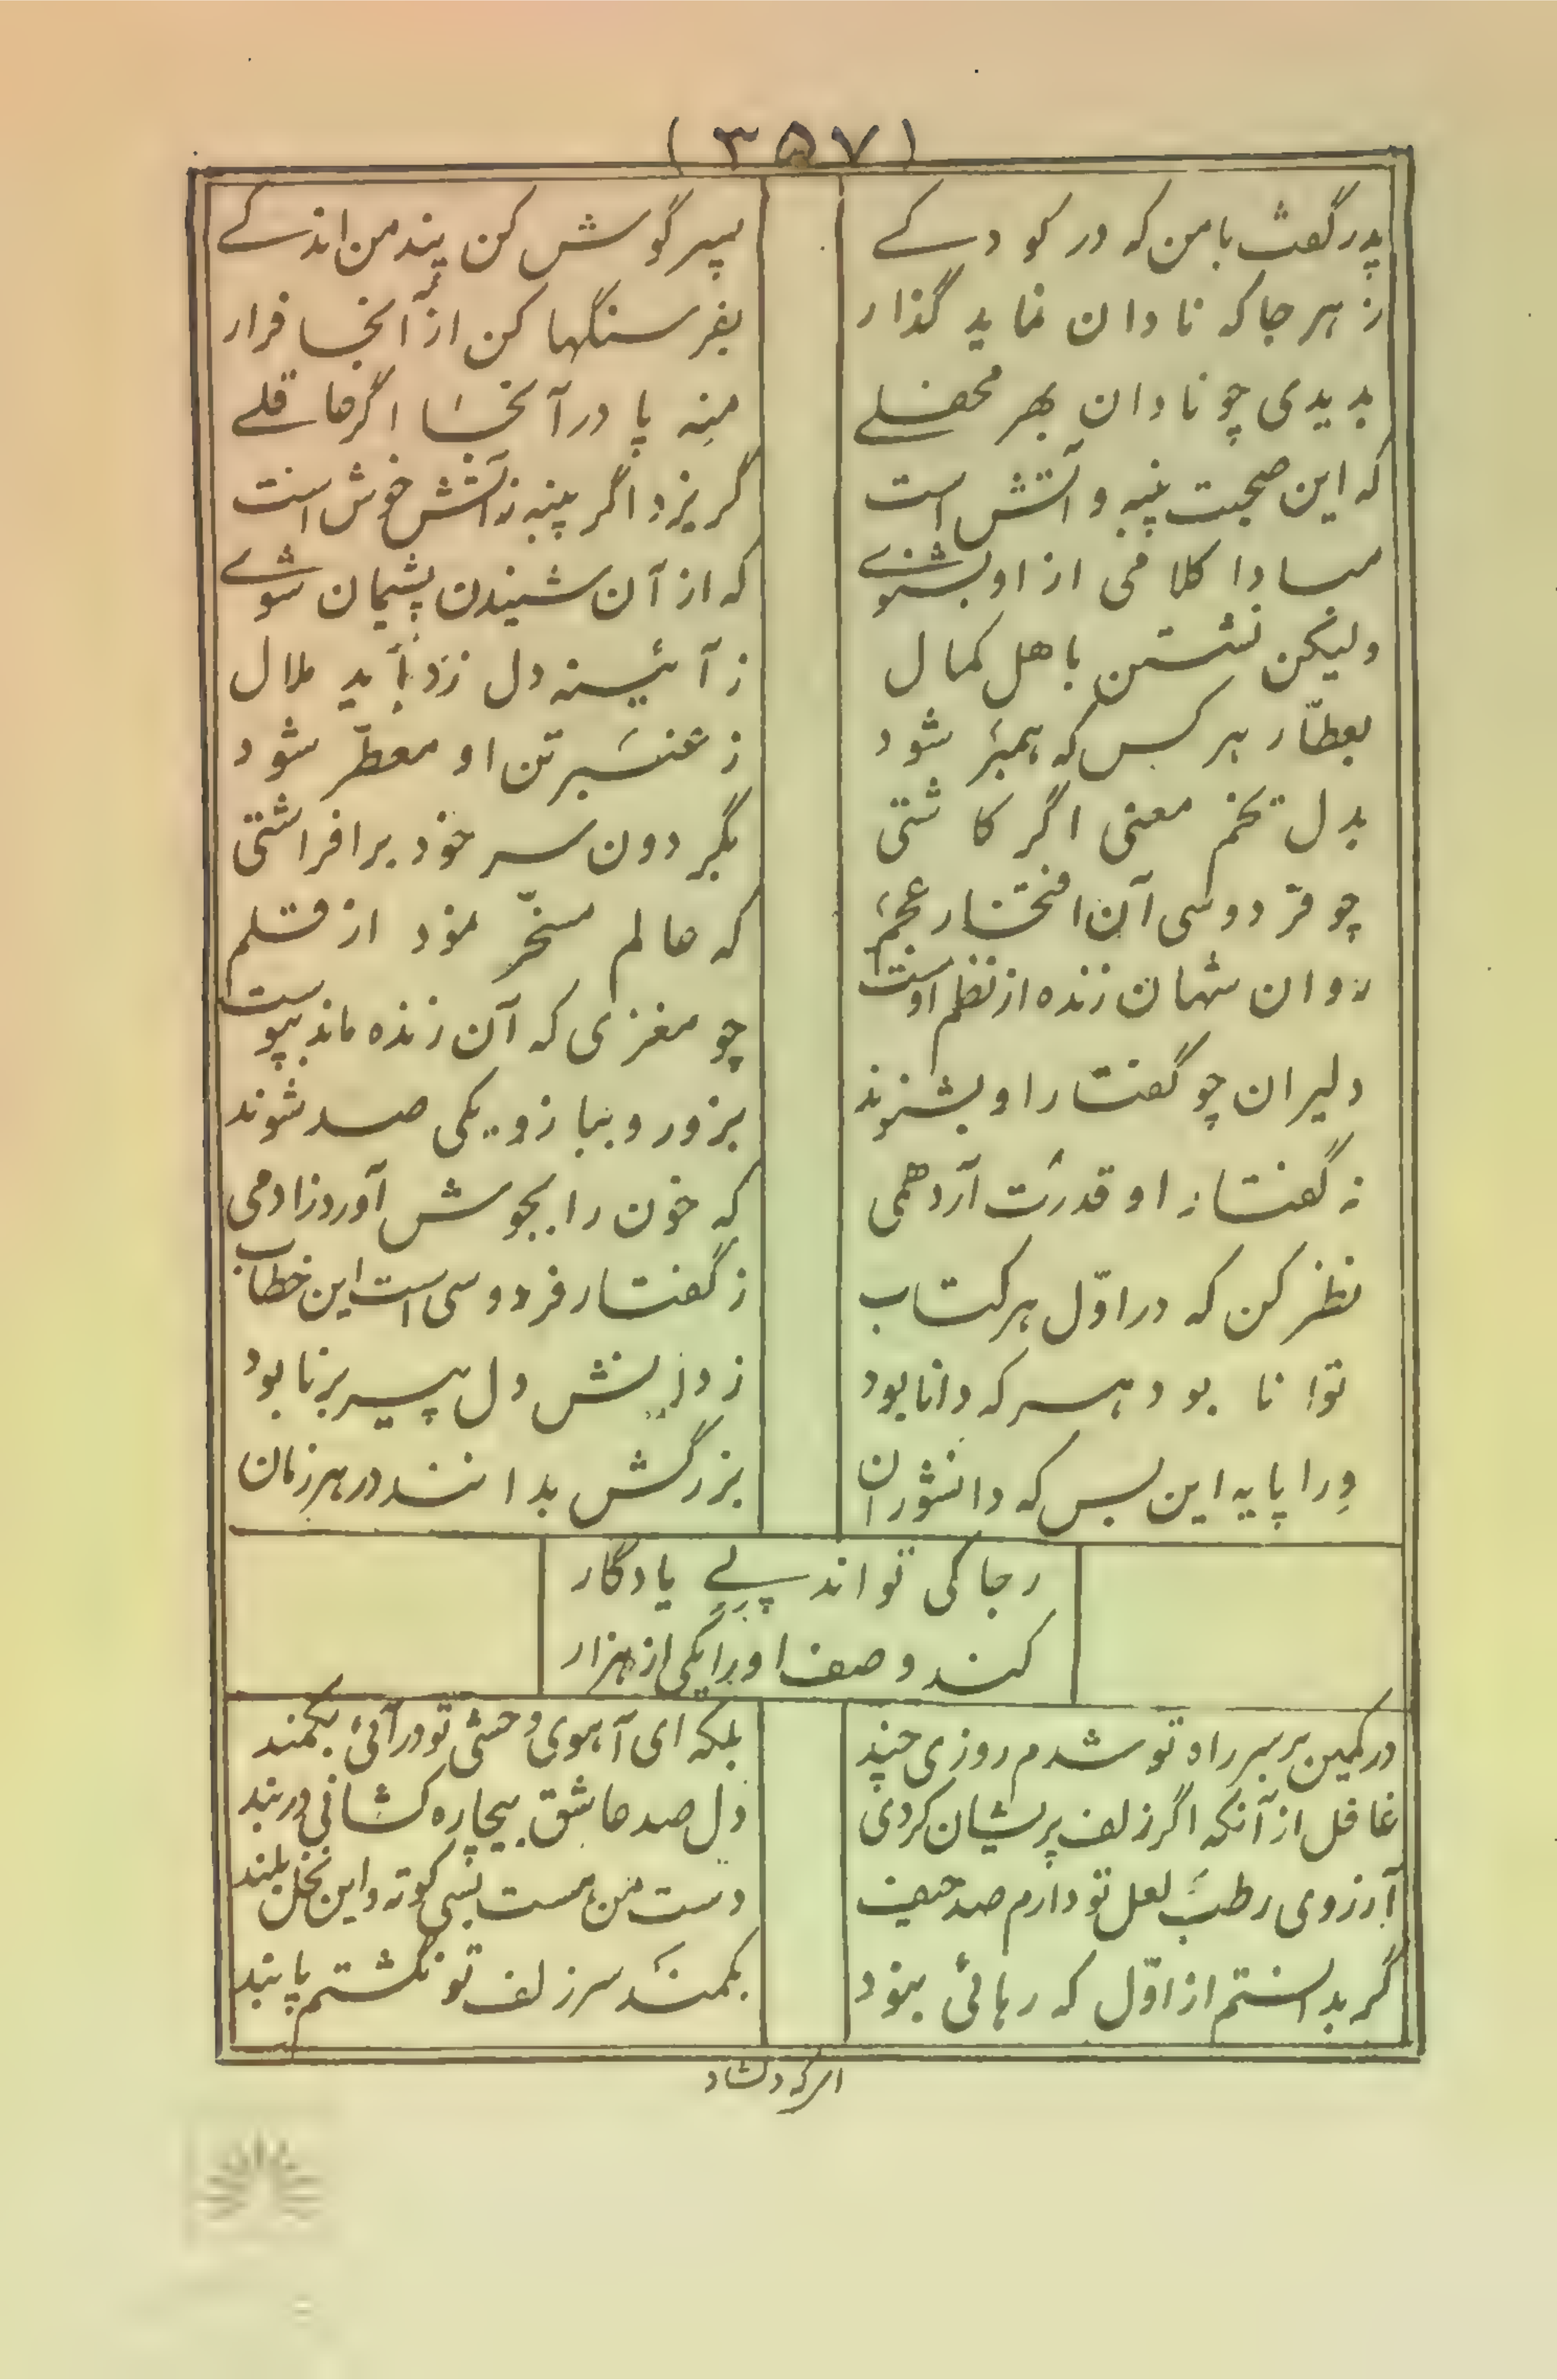 (۳۵۷)
پدر گفت با من که در کودکے پسر گوش کن پند من اندکے
ز هر جا که نادان نماید گذار بفرسنگها کن از آنجا فرار
بدیدی چو نادان بهر محفلے منه پا در آنجا اگر عاقلے
که این صحبت پنبه و آتش است گریزد اگر پنبه ز آتش خوش است
مبادا کلامی از او بشنوے که از آن شنیدن پشیمان شوے
ولیکن نشستن باهل کمال ز آئینه دل زداید ملال
بعطّار هر کس که همبر شود ز عنبر تن او معطّر شود
بدل تخم معنی اگر کاشتی بگردون سر خود برافراشتی
چو فردوسی آن افتخار عجم که عالم مسخّر نمود از قلم
روان شهان زنده از نظم اوست چو مغزی که آن زنده ماند بپوست
دلیران چو گفتار او بشنوند بزور و ببازو یکی صد شوند
ز گفتار او قدرت آرد همی که خون را بجوش آورد زادمی
نظر کن که در اوّل هر کتاب ز گفتار فردوسی است این خطاب
توانا بود هر که دانا بود ز دانش دل پیر برنا بود
وِرا پایه این بس که دانشوران بزرگش بدانند در هر زمان
رجا کی تواند پے یادگار
کند وصف او را یکی از هزار
در کمین بر سر راه تو شدم روزی چند بلکه ای آهوی وحشی تو در آئی بکمند
غافل از آنکه اگر زلف پریشان کردی دل صد عاشق بیچاره کشانی در بند
آرزوی رطب لعل تو دارم صد حیف دست من هست بسی کوته و این نخل بلند
گر بدانستم از اوّل که رهائی نبود بکمند سر زلف تو نگشتم پابند